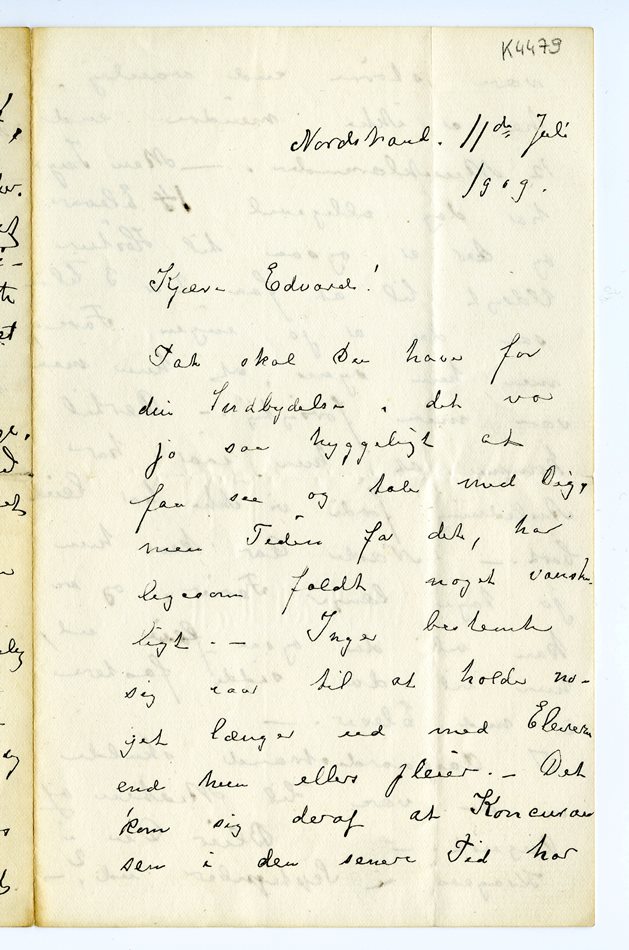 K4479
Nordstrand. 11de Juli
1909.
Kjære Edvard!
Tak skal Du have for
din Indbydelse, det var
jo saa hyggeligt at
faa see og tale med Dig,
men Tiden for det, har
ligesom faldt noget vanske-
ligt. – Inger bestemte
sig iaar til at holde no-
get længer ud med Eleverne
end hun ellers pleier. – Det
kom sig deraf at Koncuran
sen i den senere Tid har